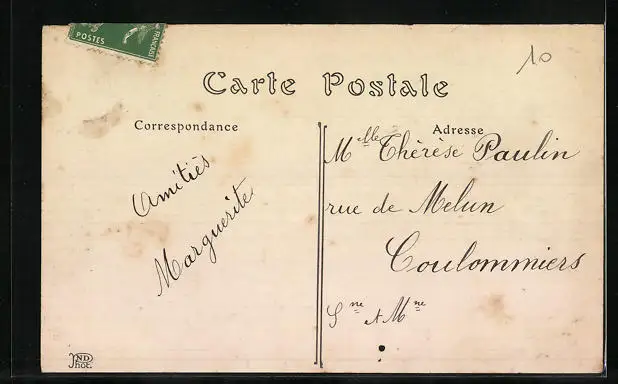 POSTES
FRANÇAIS
10
Carte Postale
Correspondance
Adresse
Amitiés
Marguerite
Mlle Thérèse Paulin
rue de Melun
Coulommiers
Sne et Mne
ND
Phot.